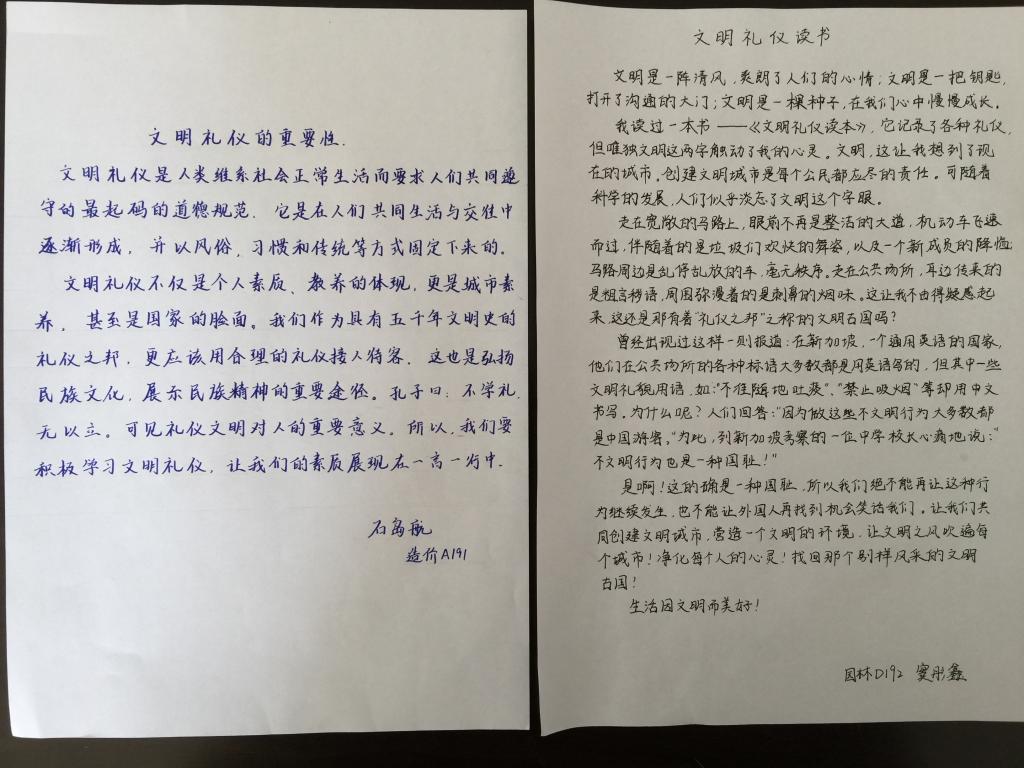 文明礼仪的重要性.
文明礼仪是人类维系社会正常生活而要求人们共同遵
守的最起码的道德规范. 它是在人们共同生活与交往中
逐渐形成, 并以风俗, 习惯和传统等方式固定下来的.
文明礼仪不仅是个人素质、教养的体现, 更是城市素
养, 甚至是国家的脸面。我们作为具有五千年文明史的
礼仪之邦, 更应该用合理的礼仪接人待客. 这也是弘扬
民族文化, 展示民族精神的重要途径。孔子曰: 不学礼,
无以立。可见礼仪文明对人的重要意义。所以, 我们要
积极学习文明礼仪, 让我们的素质展现在一言一行中.
石岛航
造价A191
文明礼仪读书
文明是一阵清风,爽朗了人们的心情;文明是一把钥匙,
打开了沟通的大门;文明是一棵种子,在我们心中慢慢成长。
我读过一本书——《文明礼仪读本》,它记录了各种礼仪,
但唯独文明这两字触动了我的心灵。文明,这让我想到了现
在的城市。创建文明城市是每个公民都应尽的责任。可随着
科学的发展,人们似乎淡忘了文明这个字眼。
走在宽敞的马路上,眼前不再是整洁的大道,机动车飞速
而过,伴随着的是垃圾们欢快的舞姿,以及一个新成员的降临;
马路周边是乱停乱放的车,毫无秩序。走在公共场所,耳边传来的
是粗言秽语,周围弥漫着的是刺鼻的烟味。这让我不由得疑惑起
来,这还是那有着“礼仪之邦”之称的文明古国吗?
曾经出现过这样一则报道:在新加坡,一个通用英语的国家,
他们在公共场所的各种标语大多数都是用英语写的,但其中一些
文明礼貌用语,如:“不准随地吐痰”、“禁止吸烟”等却用中文
书写。为什么呢?人们回答:“因为做这些不文明行为大多数都
是中国游客。”为此,到新加坡考察的一位中学校长心痛地说:“
不文明行为也是一种国耻!”
是啊!这的确是一种国耻,所以我们绝不能再让这种行
为继续发生,也不能让外国人再找到机会笑话我们。让我们共
同创建文明城市,营造一个文明的环境,让文明之风吹遍每
个城市!净化每个人的心灵!找回那个别样风采的文明
古国!
生活因文明而美好!
园林D192 窦彤鑫